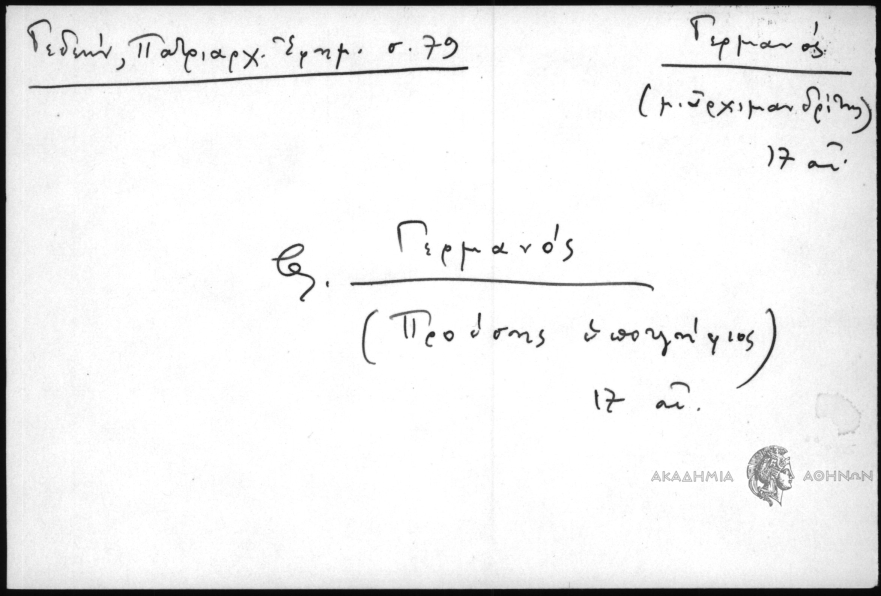 Γεδεών, Πατριαρχ. Ἐφημ. σ. 79
Γερμανός
(μ. ἀρχιμανδρίτης)
17 αἰ.
βλ. Γερμανός
(Προύσης ὑποψήφιος)
17 αἰ.
ΑΚΑΔΗΜΙΑ ΑΘΗΝΩΝ